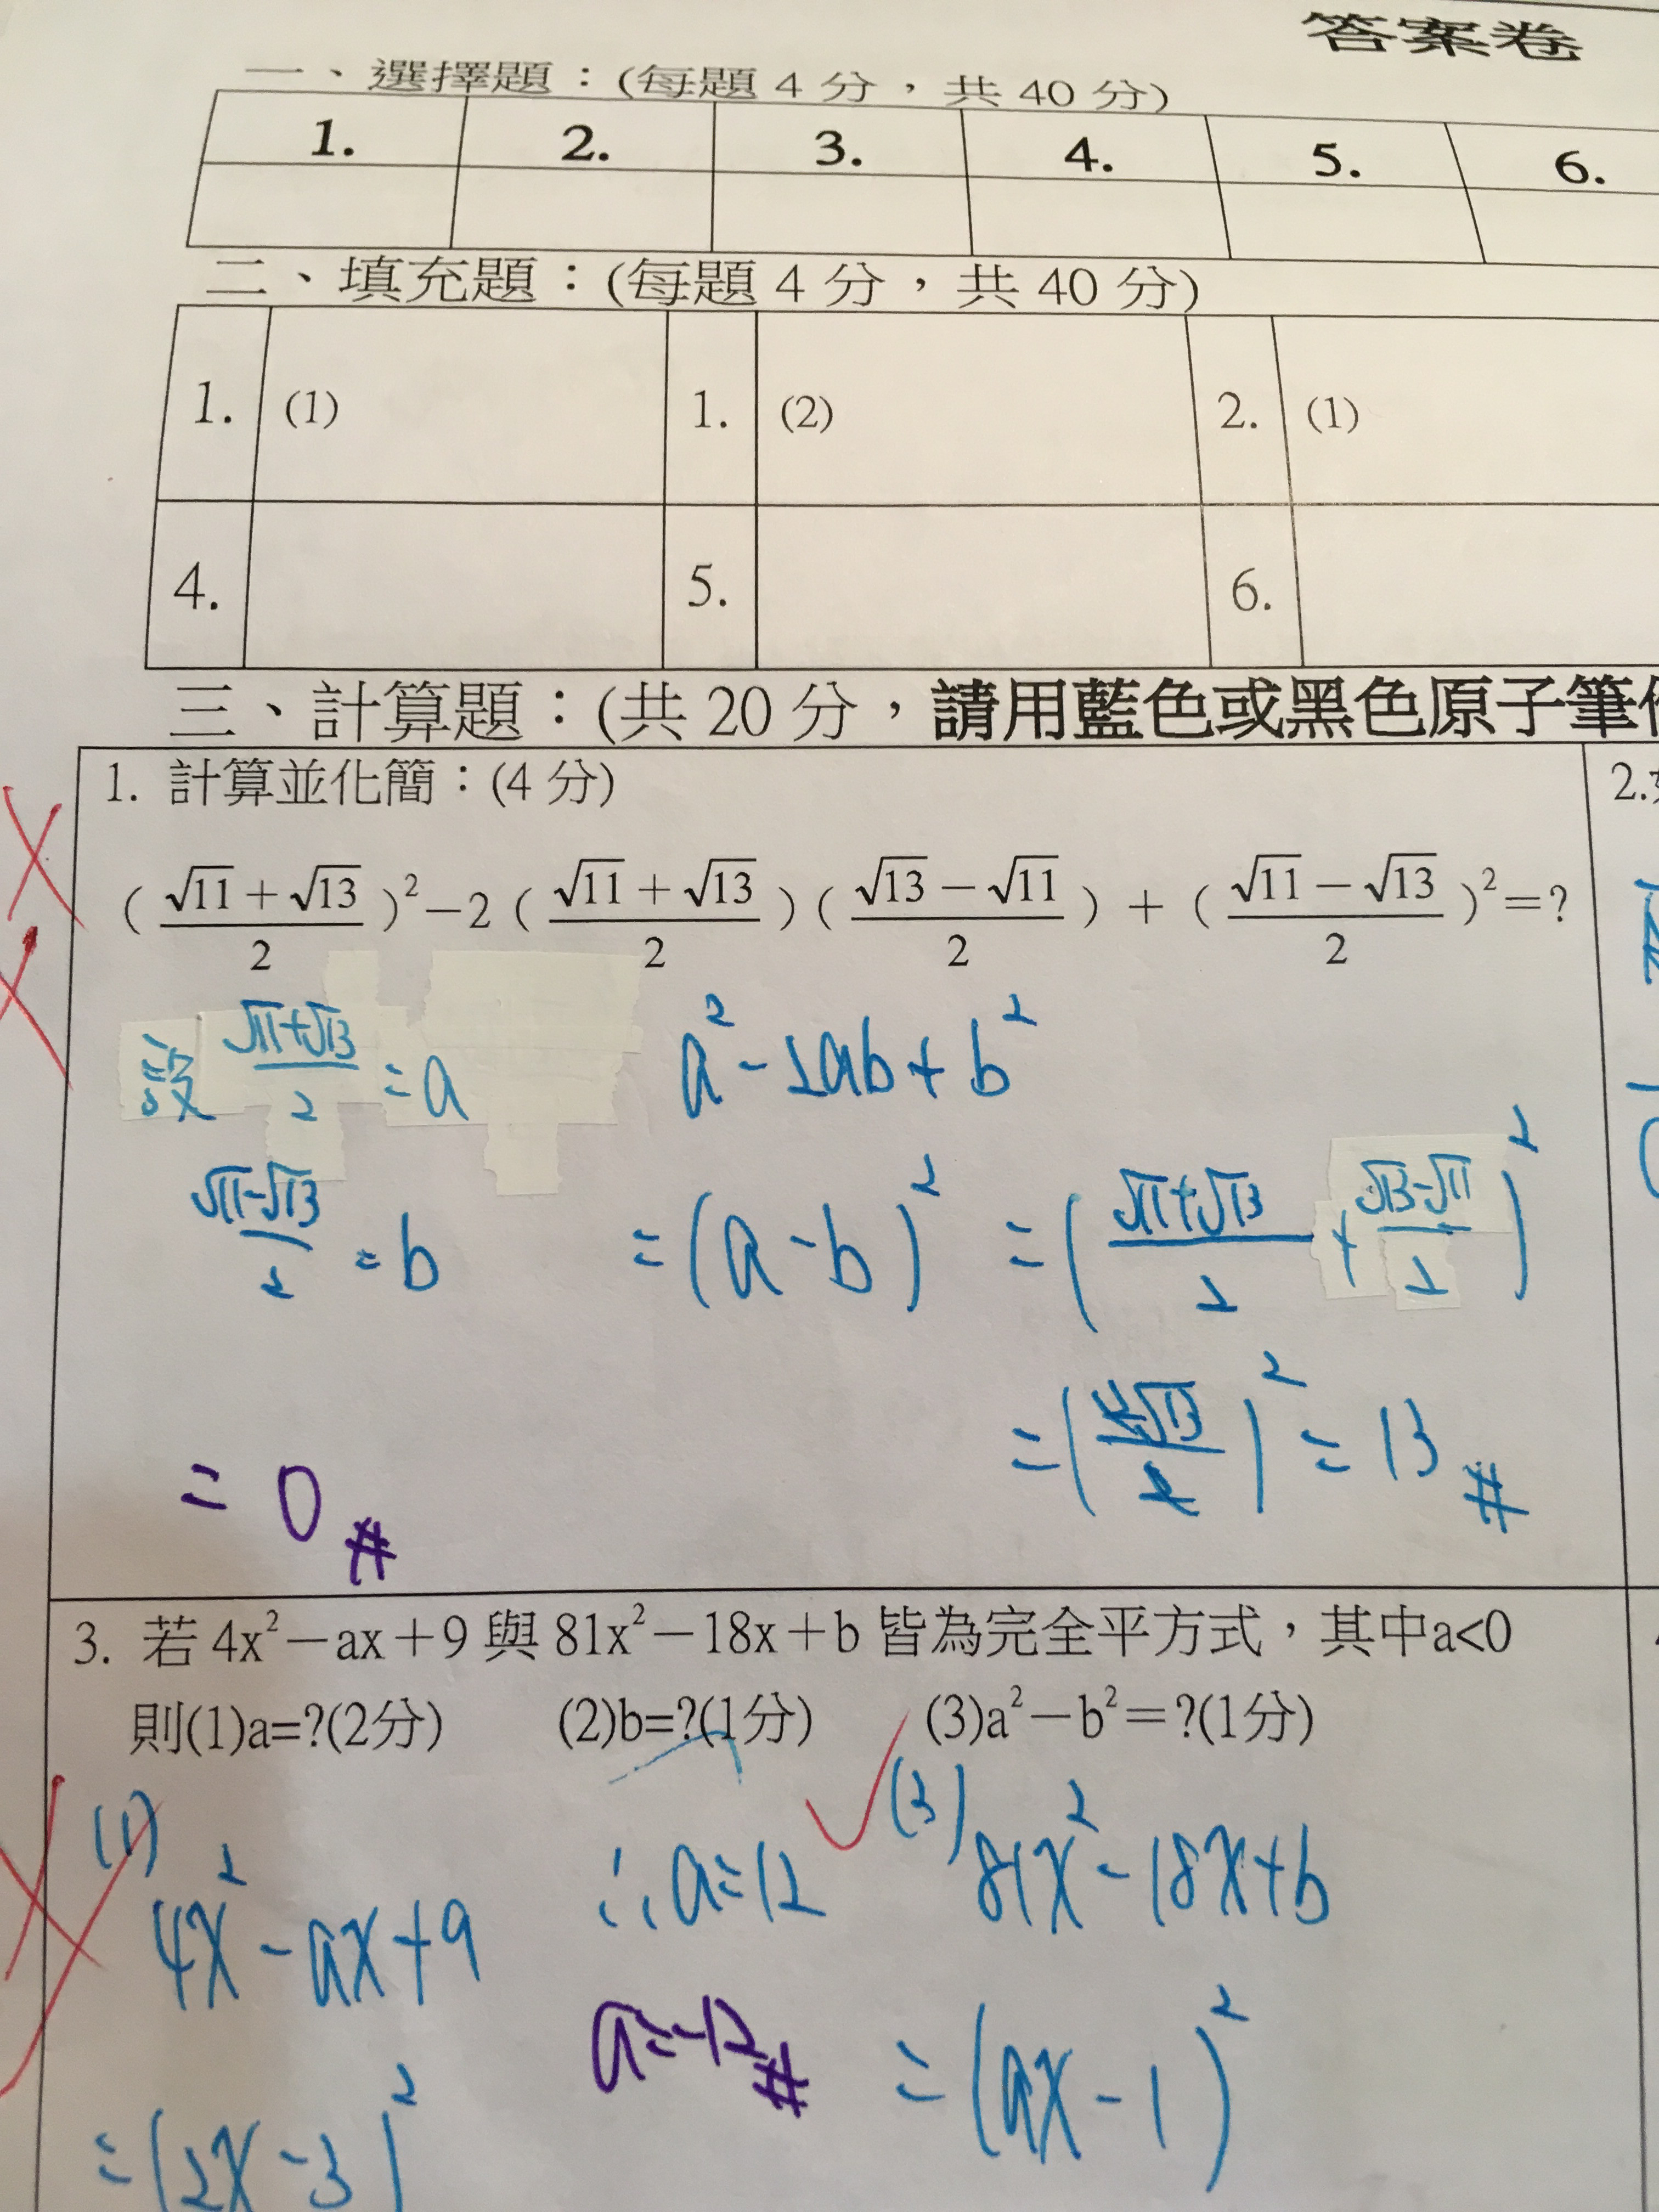 答案卷
一、選擇題：(每題 4 分，共 40 分)
1. 2. 3. 4. 5. 6.
二、填充題：(每題 4 分，共 40 分)
1. (1) 1. (2) 2. (1)
4. 5. 6.
三、計算題：(共 20 分，請用藍色或黑色原子筆
1. 計算並化簡：(4 分)
2.
(\frac{√11+√13}{2})²-2(\frac{√11+√13}{2})(\frac{√13-√11}{2})+(\frac{√11-√13}{2})²=?
設 \frac{√11+√13}{2}=a
a²-2ab+b²
\frac{√11-√13}{2}=b
=(a-b)²=(\frac{√11+√13}{2}+\frac{√13-√11}{2})²
=(\frac{2√13}{2})²=13#
=0#
3. 若 4x²-ax+9 與 81x²-18x+b 皆為完全平方式，其中a<0
則(1)a=?(2分) (2)b=?(1分) (3)a²-b²=?(1分)
(1)
4x²-ax+9
=(2x-3)²
∴a=12
a=-12#
(3) 81x²-18x+b
=(9x-1)²